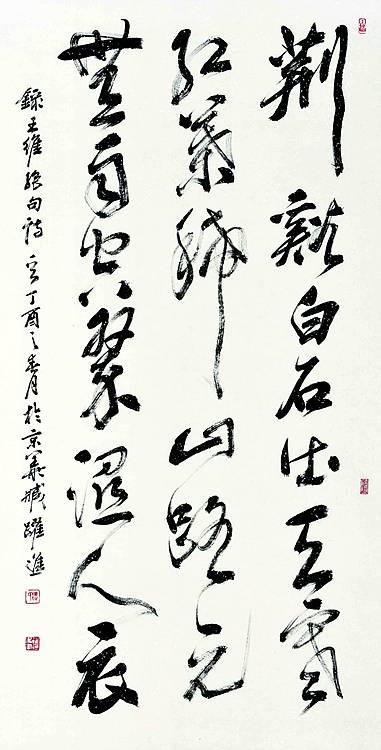 荆谿白石出天寒
红葉稀山路元
無雨空翠溼人衣
錄王維絕句詩丁酉之春月於京華臧躍進